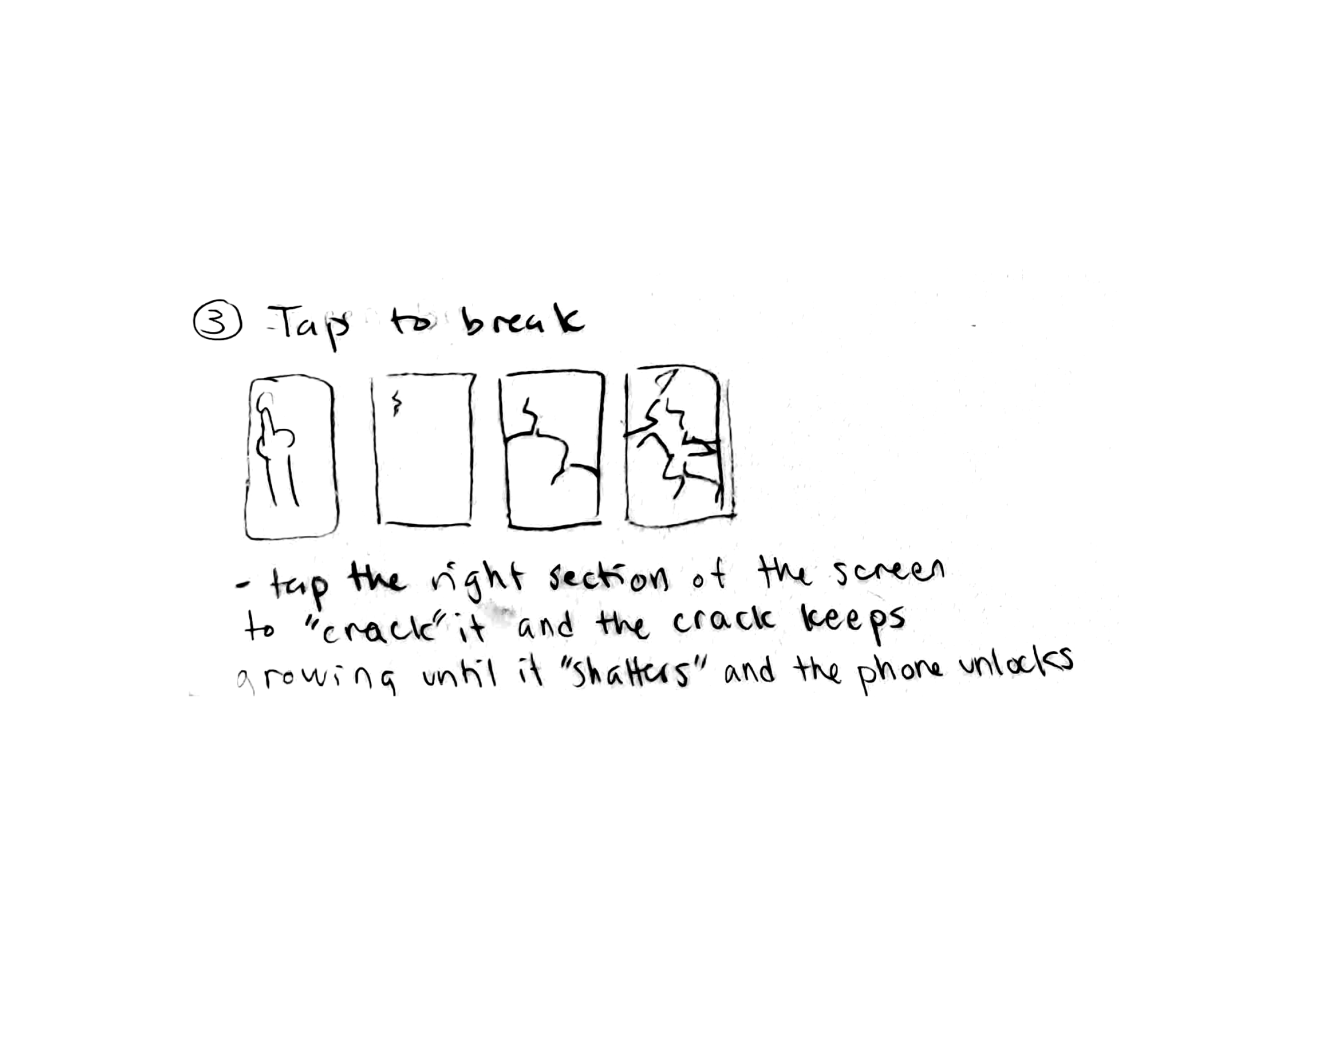 ③ Taps to break
- tap the right section of the screen
to "crack" it and the crack keeps
growing until it "shatters" and the phone unlocks